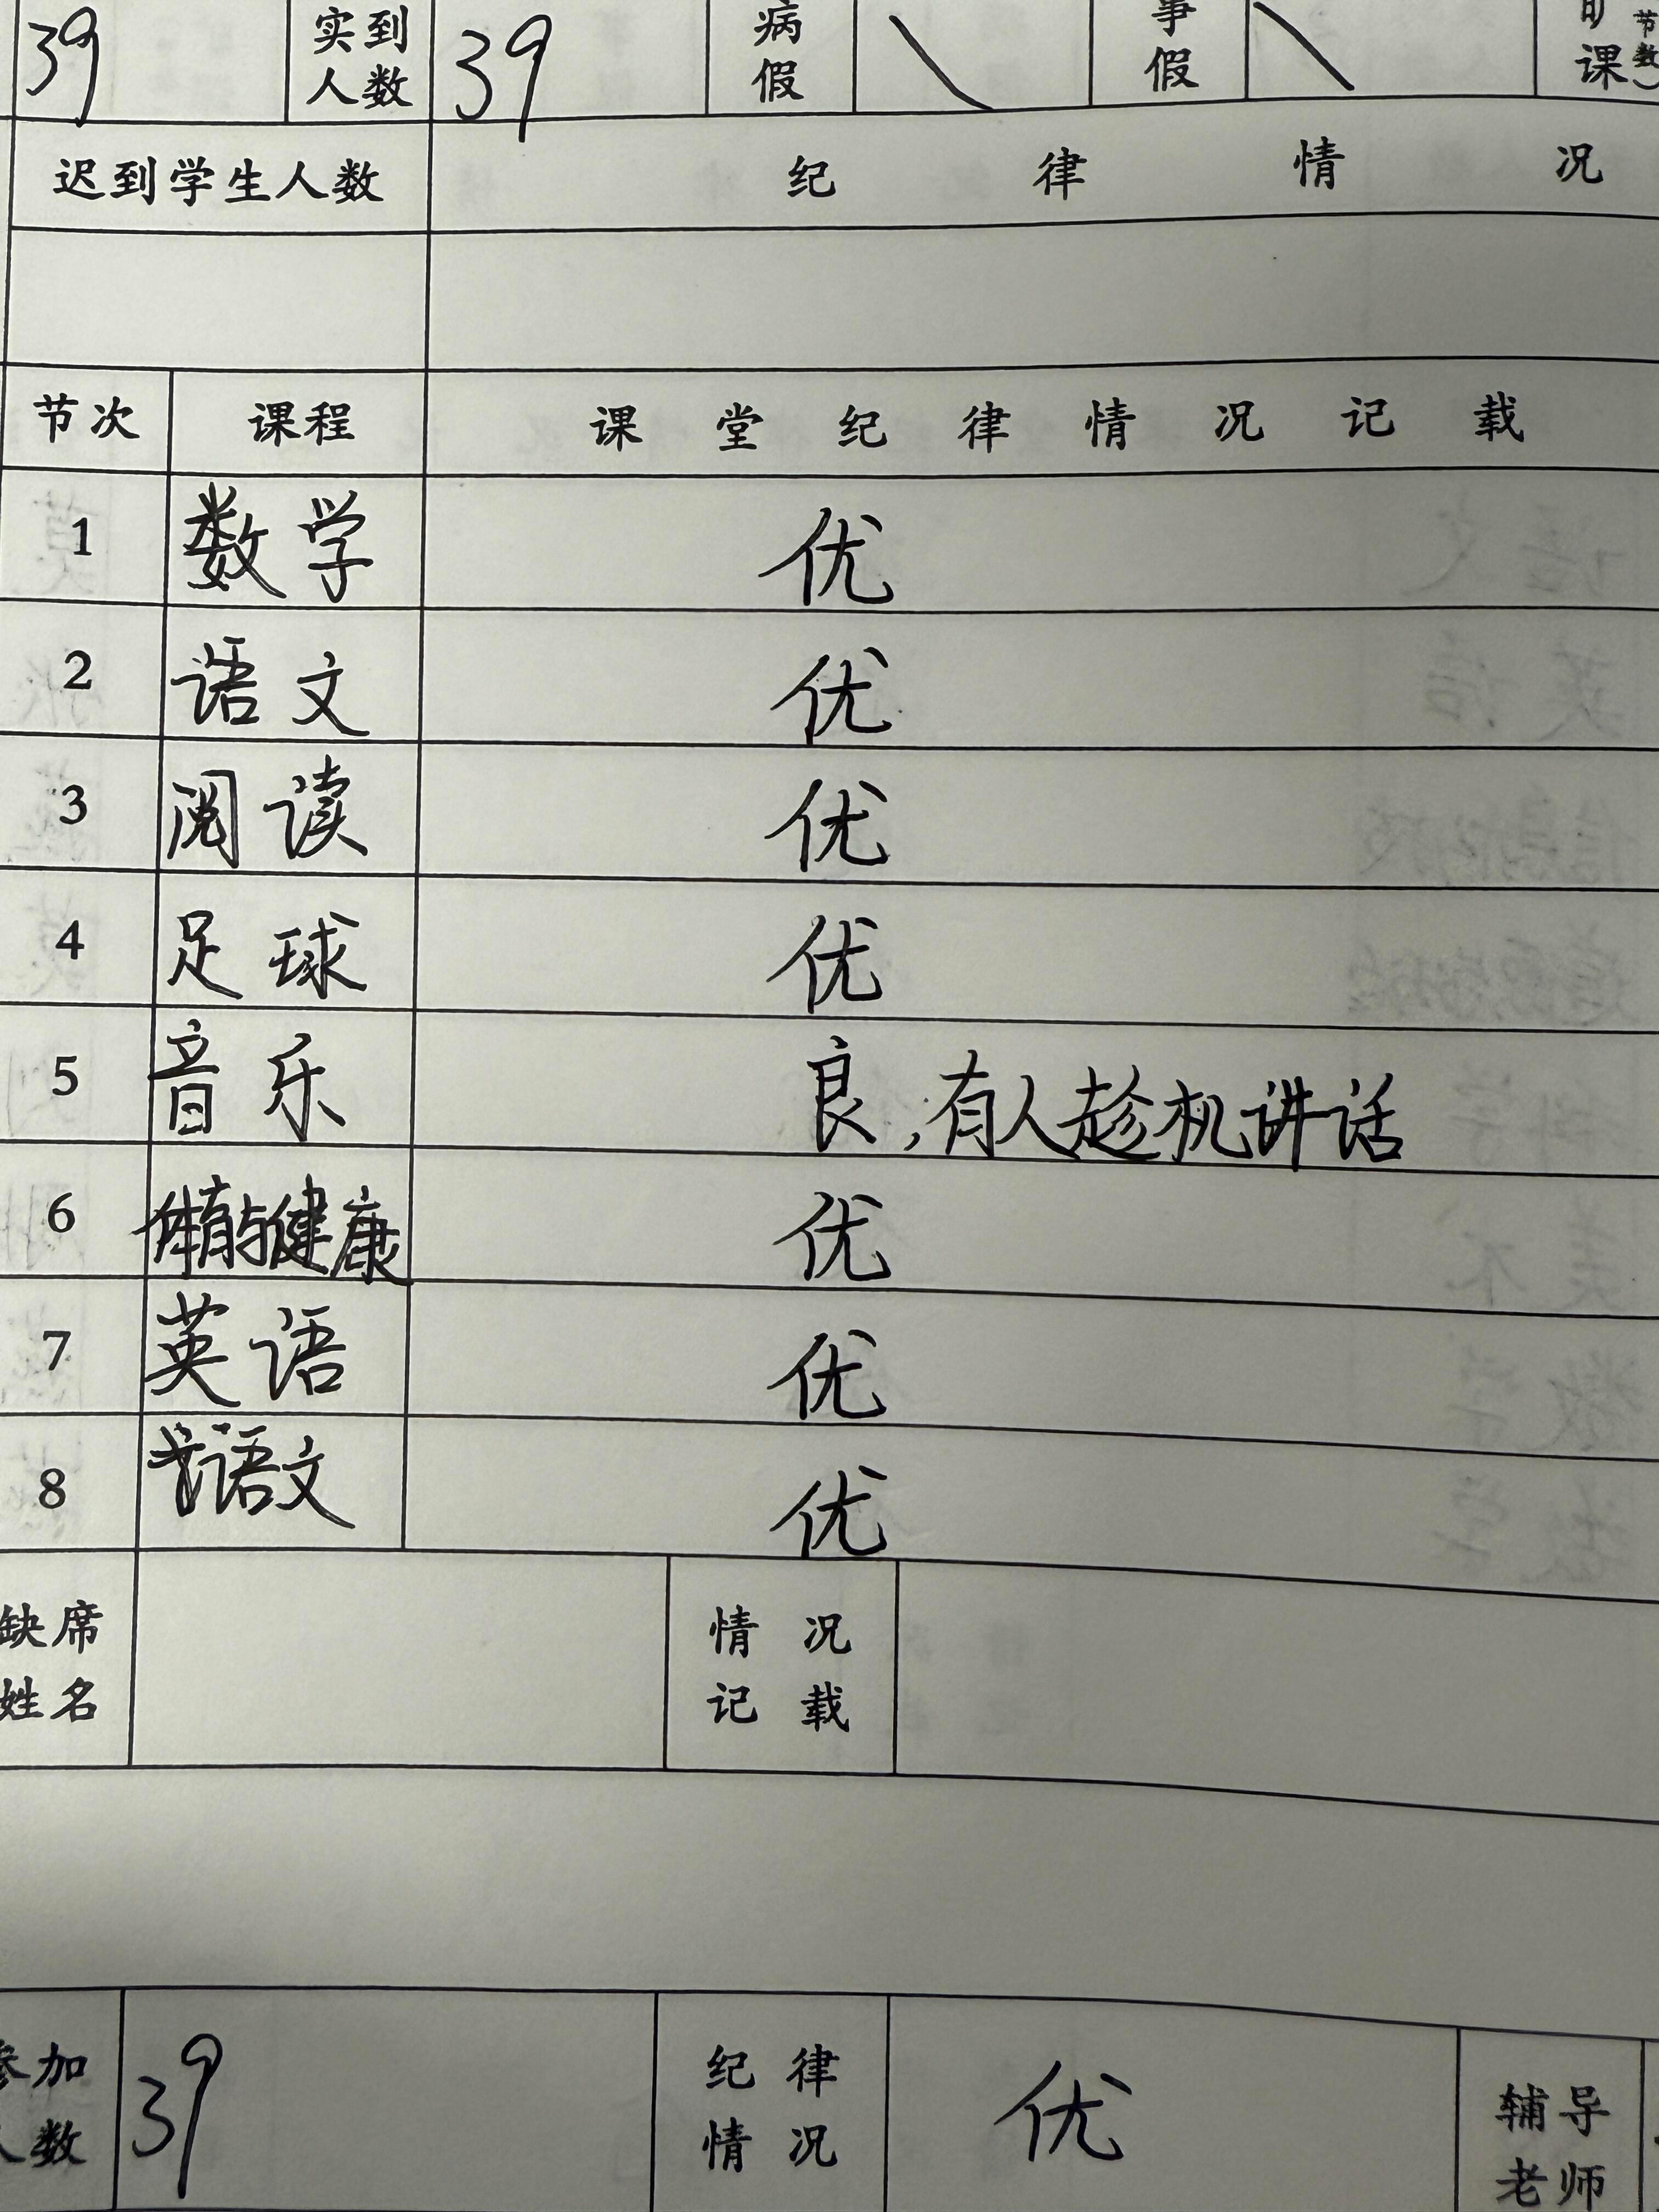 39 实到人数 39 病假 事假 课 节数
迟到学生人数 纪律情况
节次 课程 课堂纪律情况记载
1 数学 优
2 语文 优
3 阅读 优
4 足球 优
5 音乐 良，有人趁机讲话
6 体育与健康 优
7 英语 优
8 语文 优
缺席姓名 情况记载
参加人数 39 纪律情况 优 辅导老师